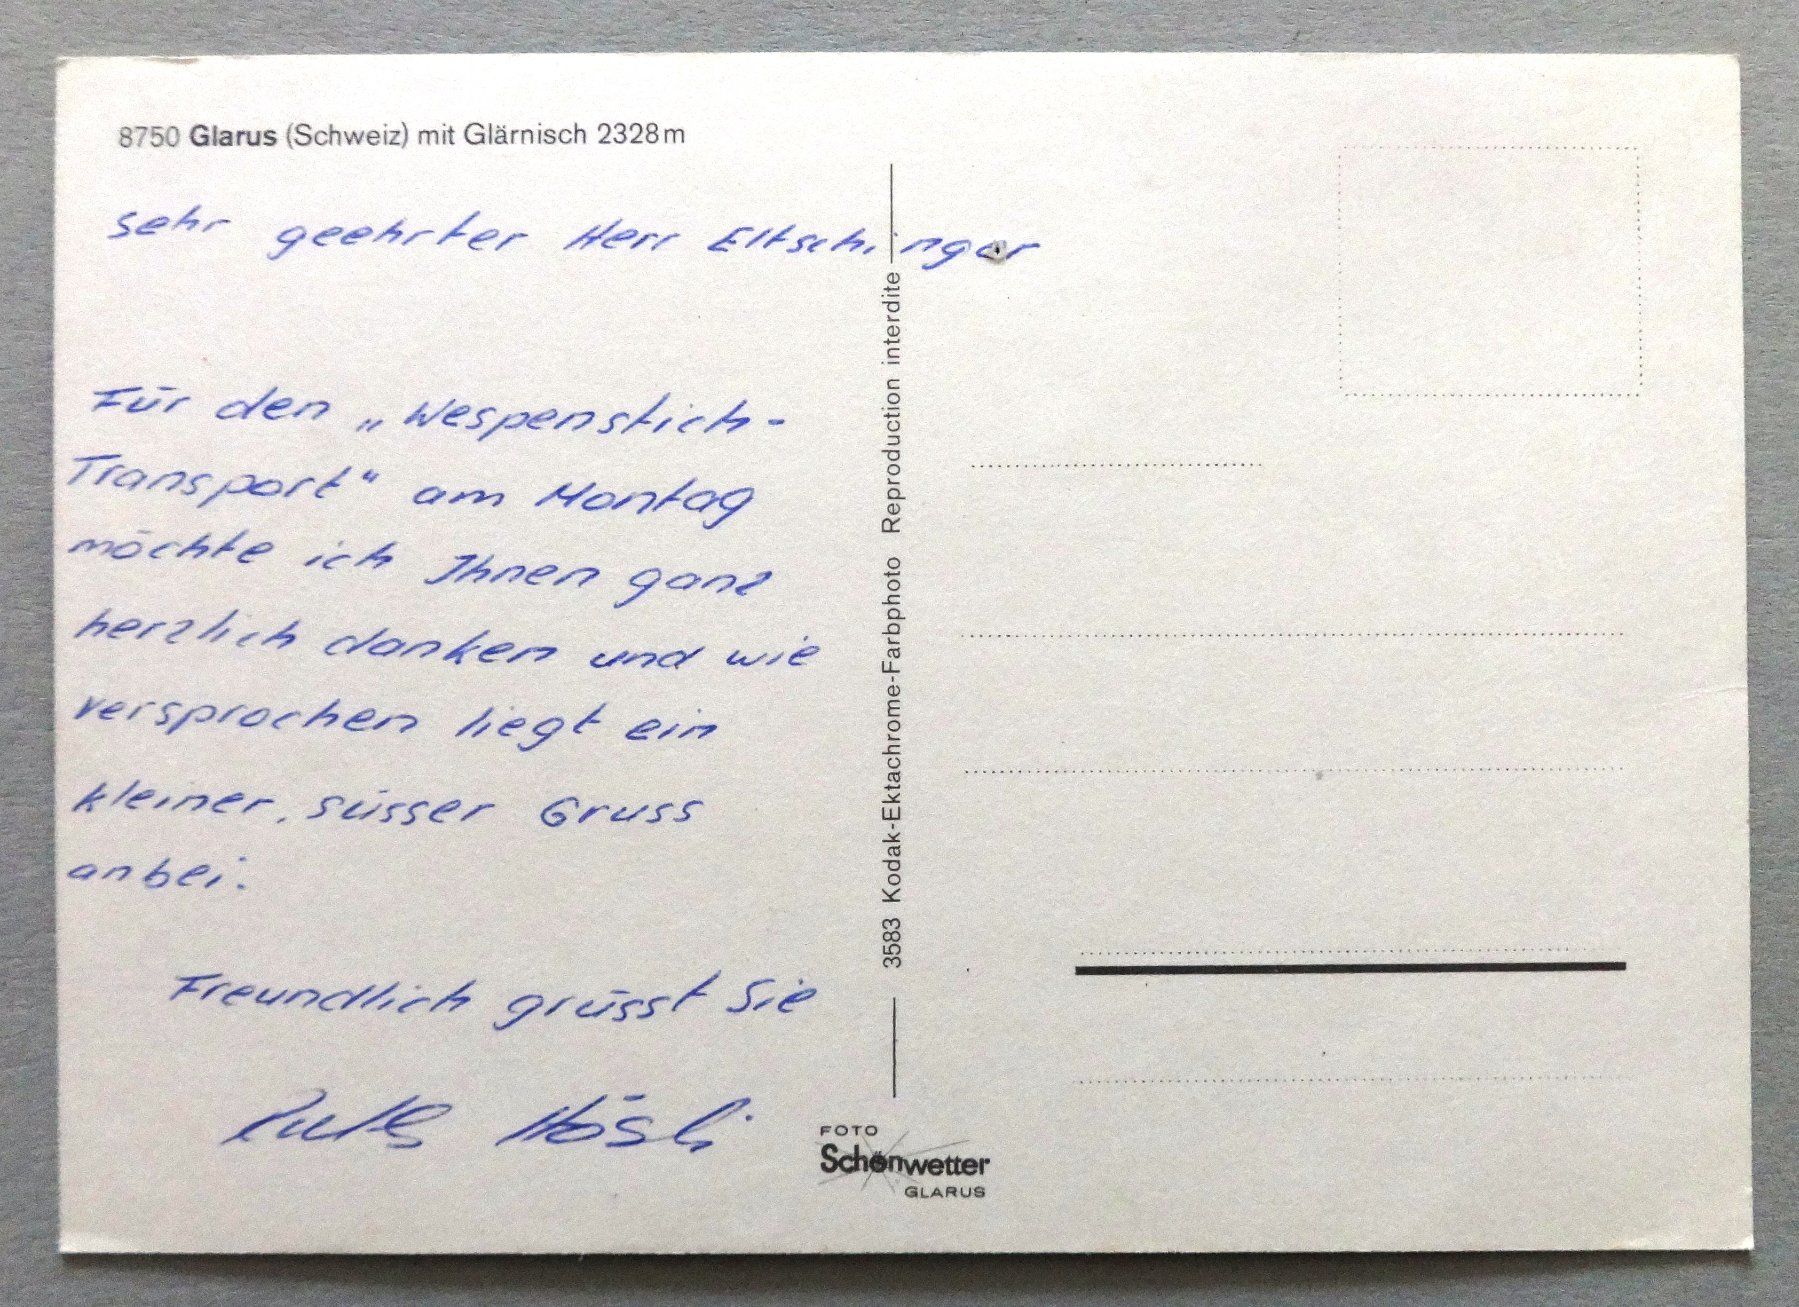 8750 Glarus (Schweiz) mit Glärnisch 2328m
sehr geehrter Herr Eltschinger
Für den „Wespenstich-
Transport" am Montag
möchte ich Ihnen ganz
herzlich danken und wie
versprochen liegt ein
kleiner, süsser Gruss
anbei.
Freundlich grüsst Sie
Ruth Hösli
3583 Kodak-Ektachrome-Farbphoto Reproduction interdite
FOTO
Schönwetter
GLARUS